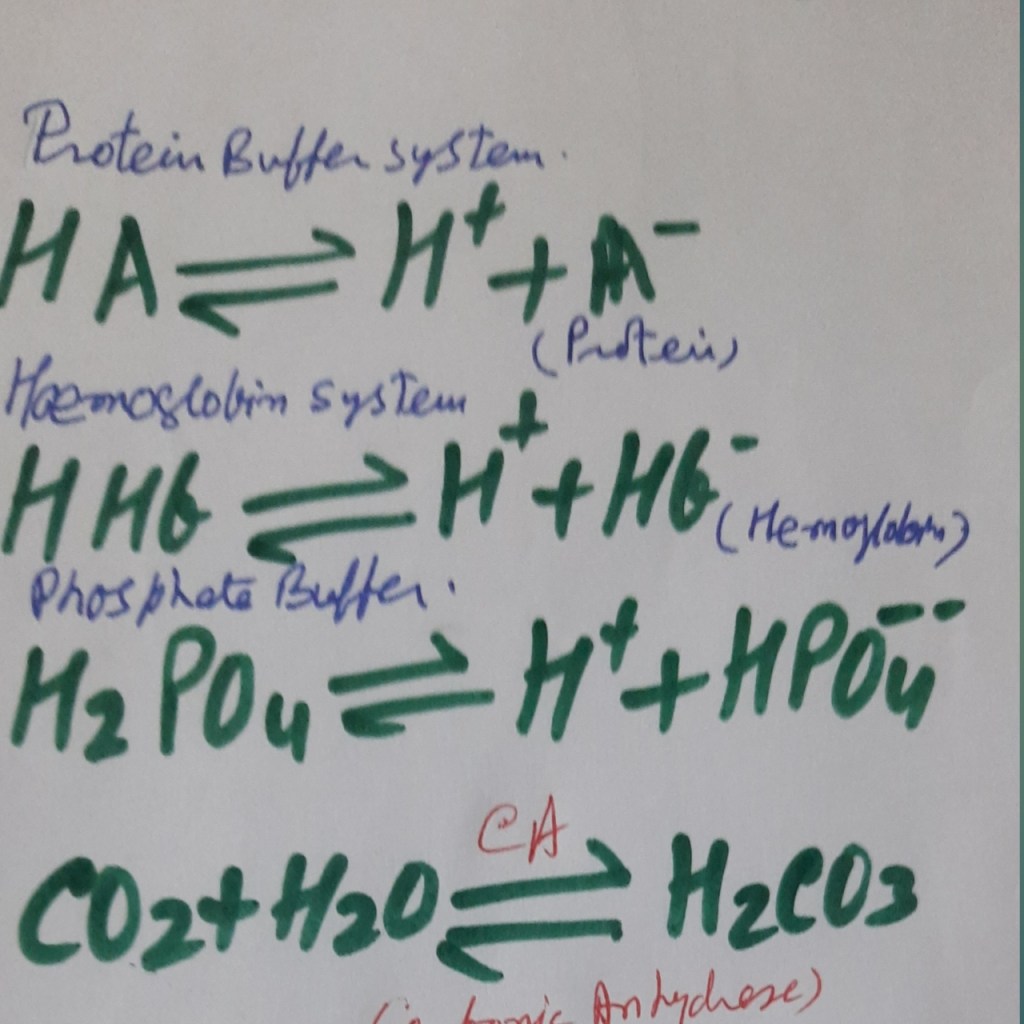 Protein Buffer system.
HA ⇌ H⁺ + A⁻
(Protein)
Haemoglobin system
HHb ⇌ H⁺ + Hb⁻ (Hemoglobin)
Phosphate Buffer.
H₂PO₄ ⇌ H⁺ + HPO₄⁻⁻
CA
CO₂ + H₂O ⇌ H₂CO₃
Anhydrase)